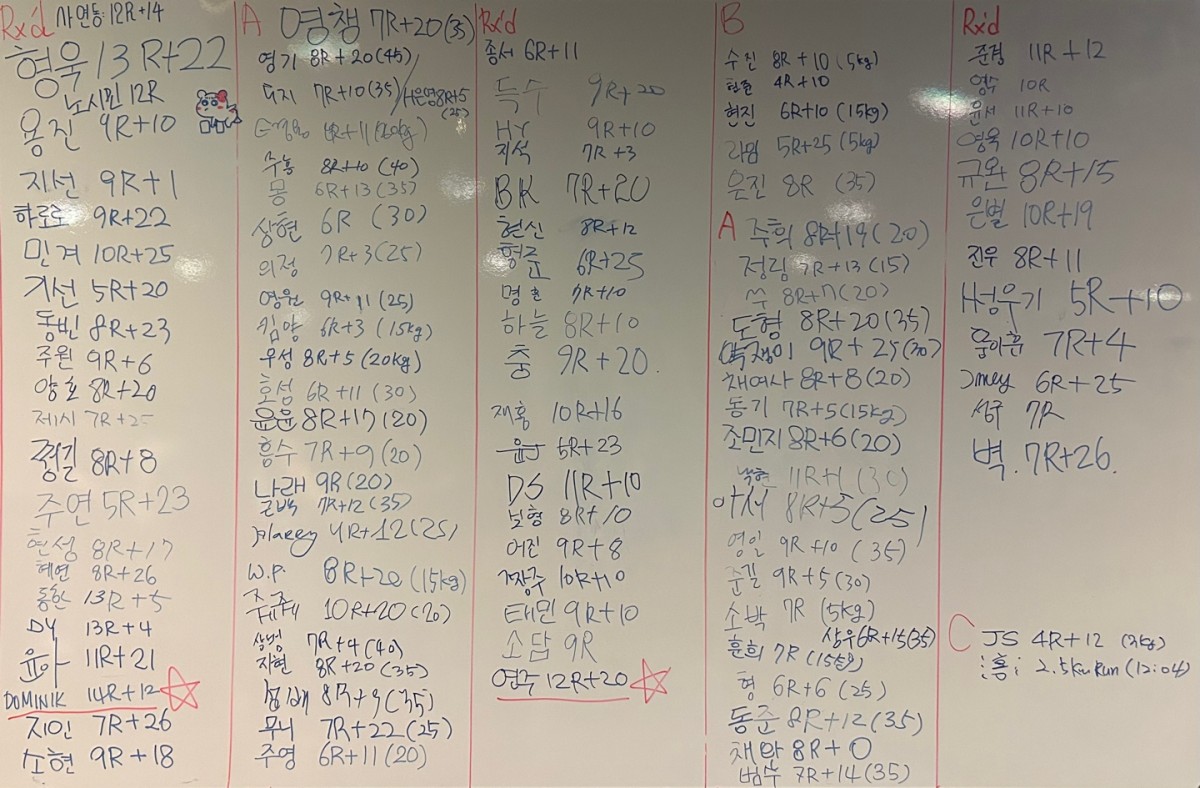 Rx'd 사연동 12R+14
형욱 13R+22
노시민 12R
용진 9R+10
지선 9R+1
하로로 9R+22
민계 10R+25
기선 5R+20
동빈 8R+23
주원 9R+6
양호 8R+20
제시 7R+25
찡길 8R+8
주연 5R+23
현성 8R+17
혜연 8R+26
동환 13R+5
DY 13R+4
윤아 11R+21
DOMINIK 14R+12
지인 7R+26
소현 9R+18
A 영챙 7R+20(35)
영기 8R+20(45)
7R+10(35)/ 8R+5 (25)
(20kg)
주홍 8R+10 (40)
몽 6R+13(35)
상현 6R (30)
의정 7R+3(25)
영원 9R+11(25)
킴양 6R+3(15kg)
우성 8R+5(20kg)
호성 6R+11(30)
윤윤 8R+17(20)
흥수 7R+9(20)
나래 9R(20)
7R+12(35)
4R+12(25)
W.P 8R+20(15kg)
10R+20(20)
상범 7R+4(40)
지현 8R+20(35)
8R+9(35)
무니 7R+22(25)
주영 6R+11(20)
Rx'd
종서 6R+11
득수 9R+20
HY 9R+10
지석 7R+3
BK 7R+20
현신 8R+12
형준 6R+25
명호 7R+10
하늘 8R+10
충 9R+20.
재홍 10R+16
5R+23
DS 11R+10
보형 8R+10
어진 9R+8
짱주 10R+10
태민 9R+10
소답 9R
연주 12R+20
B
수진 8R+10(5kg)
4R+10
현진 6R+10(15kg)
라임 5R+25(5kg)
은진 8R (35)
A 주희 8R+19(20)
정림 7R+13(15)
쑤 8R+17(20)
도형 8R+20(35)
9R+25(30)
채여사 8R+8(20)
동기 7R+5(15kg)
조민지 8R+6(20)
11R+1(30)
아서 8R+5(25)
영일 9R+10(35)
준길 9R+5(30)
소박 7R (5kg)
상우 6R+15(35)
훈희 7R(15kg)
형 6R+6(25)
동준 8R+12(35)
채완 8R+0
범수 7R+14(35)
Rx'd
준정 11R+12
영수 10R
윤서 11R+10
영욱 10R+10
규완 8R+15
은별 10R+19
진우 8R+11
5R+10
윤아훈 7R+4
6R+25
성우 7R
벽. 7R+26.
C JS 4R+12
2.5km Run (12:04)